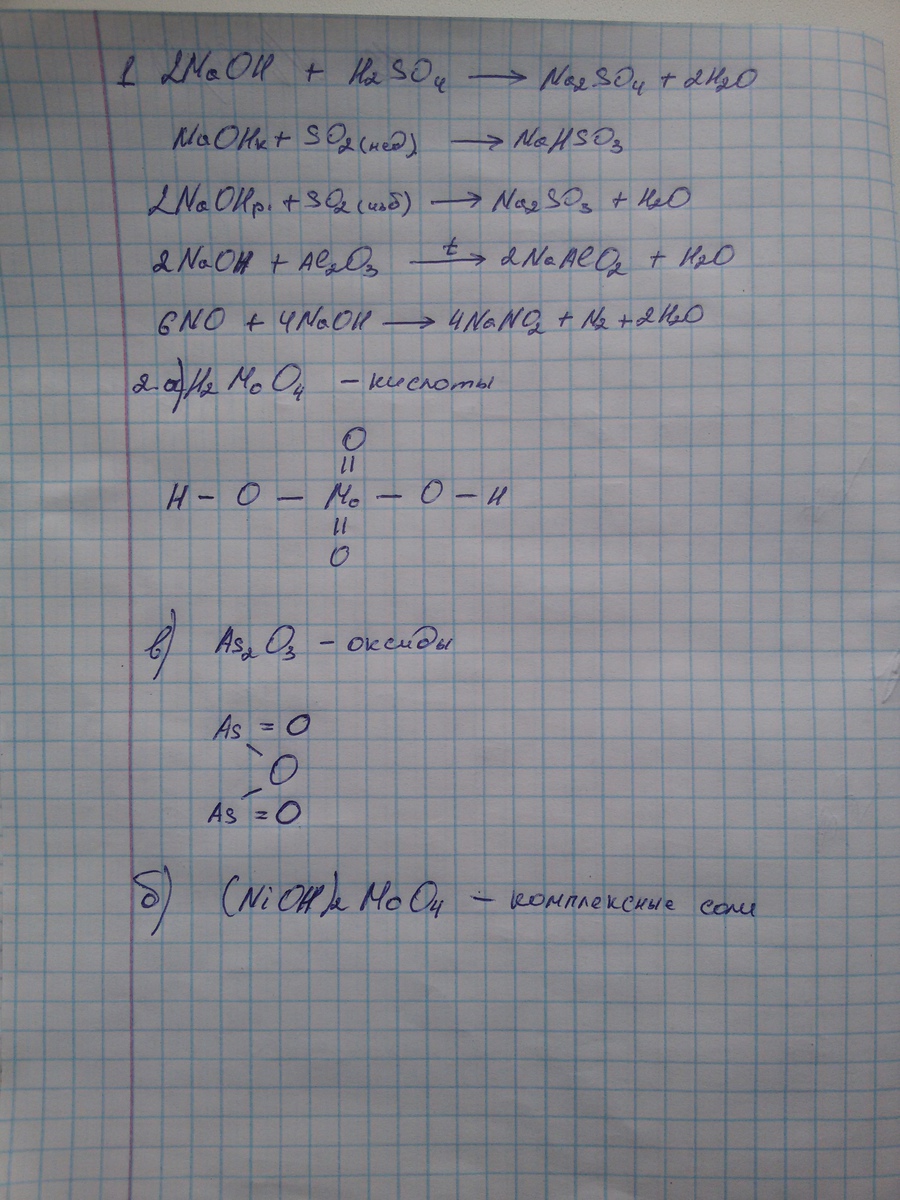 1 2NaOH + H₂SO₄ → Na₂SO₄ + 2H₂O
NaOHк + SO₂(нед) → NaHSO₃
2NaOHр. + SO₂(изб) → Na₂SO₃ + H₂O
2NaOH + Al₂O₃ t→ 2NaAlO₂ + H₂O
6NO + 4NaOH → 4NaNO₂ + N₂ + 2H₂O
2. а) H₂MoO₄ – кислоты
O
||
H – O – Mo – O – H
||
O
в) As₂O₃ – оксиды
As = O
\
O
/
As = O
б) (NiOH)₂MoO₄ – комплексные соли